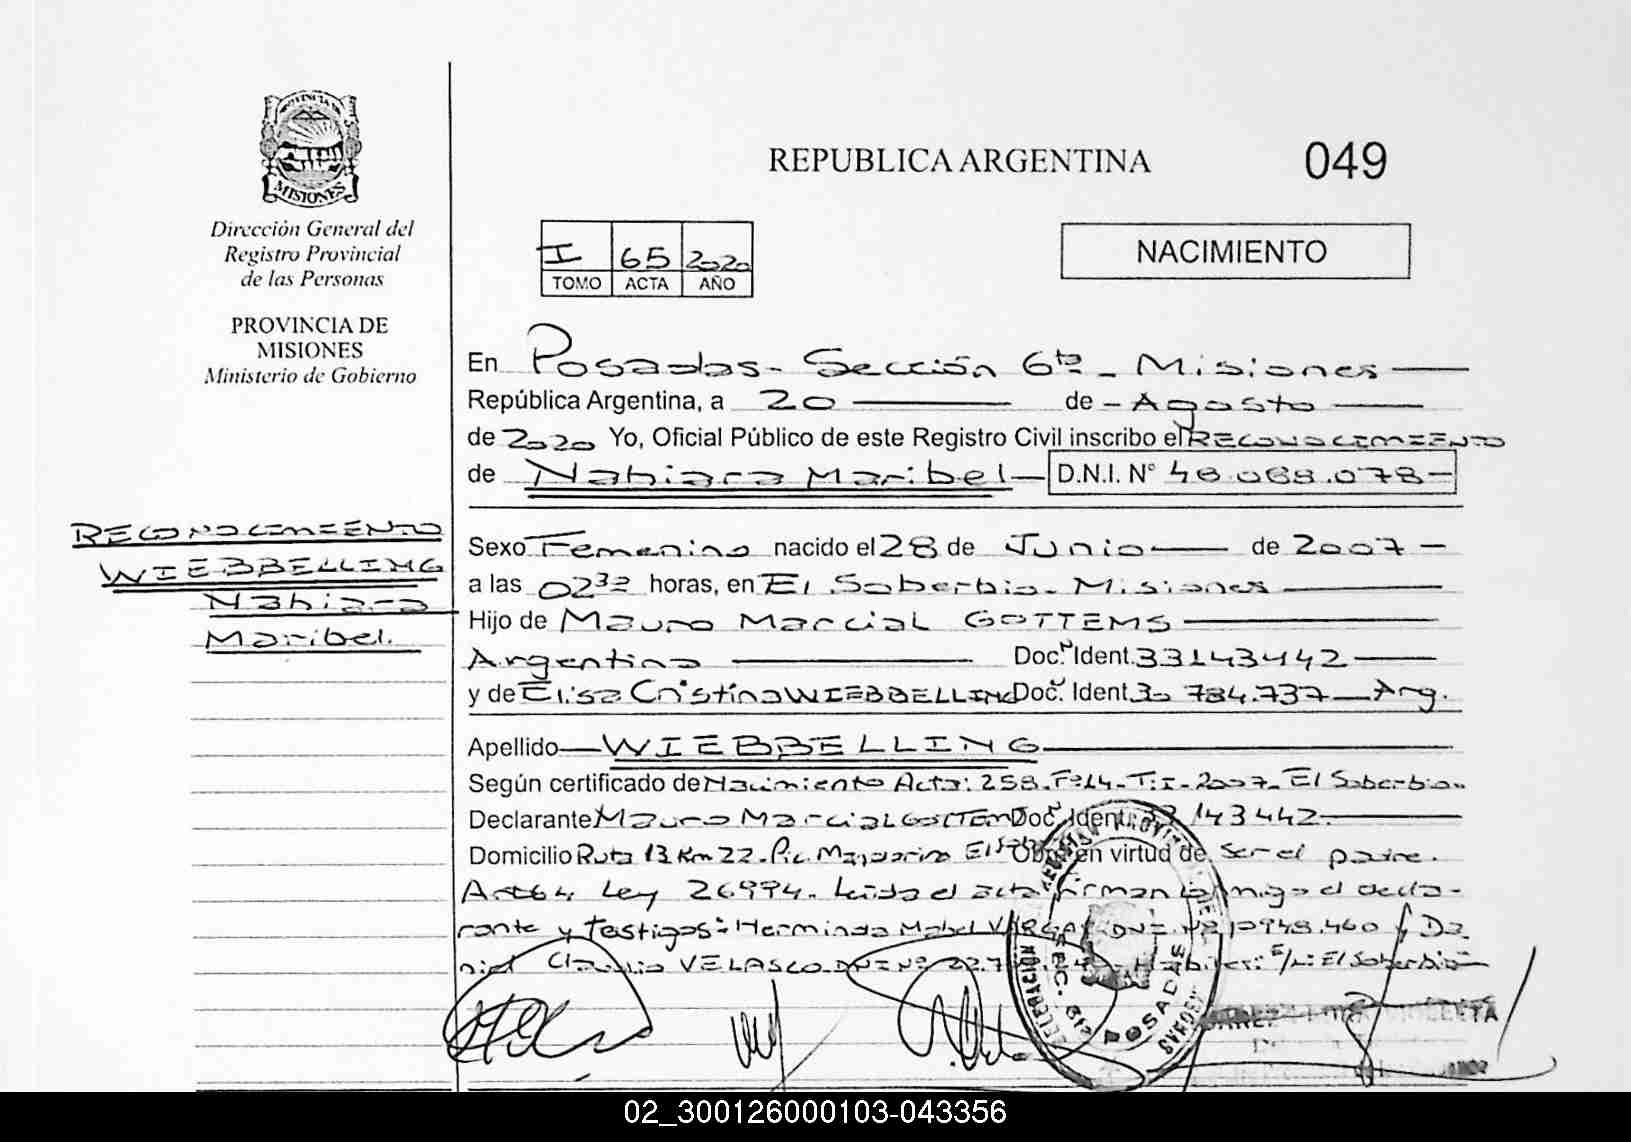 REPUBLICA ARGENTINA
049
PROVINCIA DE
MISIONES
Dirección General del
Registro Provincial
de las Personas
PROVINCIA DE
MISIONES
Ministerio de Gobierno
I 65 2020
TOMO ACTA AÑO
NACIMIENTO
En Posadas - Sección 6ta - Misiones
República Argentina, a 20 de - Agosto
de 2020 Yo, Oficial Público de este Registro Civil inscribo el RECONOCIMIENTO
de Nahiara Maribel - D.N.I. N°
RECONOCIMIENTO
WIEBBELLING
Nahiara
Maribel.
Sexo Femenino nacido el 28 de Junio de 2007 -
a las 02 32 horas, en El Soberbio - Misiones
Hijo de Mauro Marcial GOTTEMS
Argentino Doc. Ident. 33143442
y de Elisa Cristina WIEBBELLING Doc. Ident. 30 784.737 - Arg.
Apellido WIEBBELLING
Según certificado de Nacimiento Acta: 258 - Fº14 - T: I - 2007 - El Soberbio.
Declarante Mauro Marcial GOTTEMS Doc. Ident. 33143442
Domicilio Ruta 13 Km 22 - Pic. El Sob. Obra en virtud de ser el padre.
Art 64 Ley 26994. Leída el acta firman conmigo el decla-
rante y testigos: Herminda Mabel DNI Nº 948.460 y Da
niel Claudio VELASCO DNI Nº 22.7 Hábiles: El Soberbio
POSADAS
02_300126000103-043356